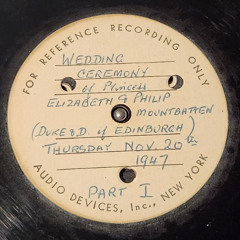 FOR REFERENCE RECORDING ONLY
WEDDING
CEREMONY
of PRINCESS
ELIZABETH & PHILIP
MOUNTBATTEN
(DUKE & D. of EDINBURGH)
THURSDAY NOV. 20th
1947
PART I
AUDIO DEVICES, Inc., NEW YORK